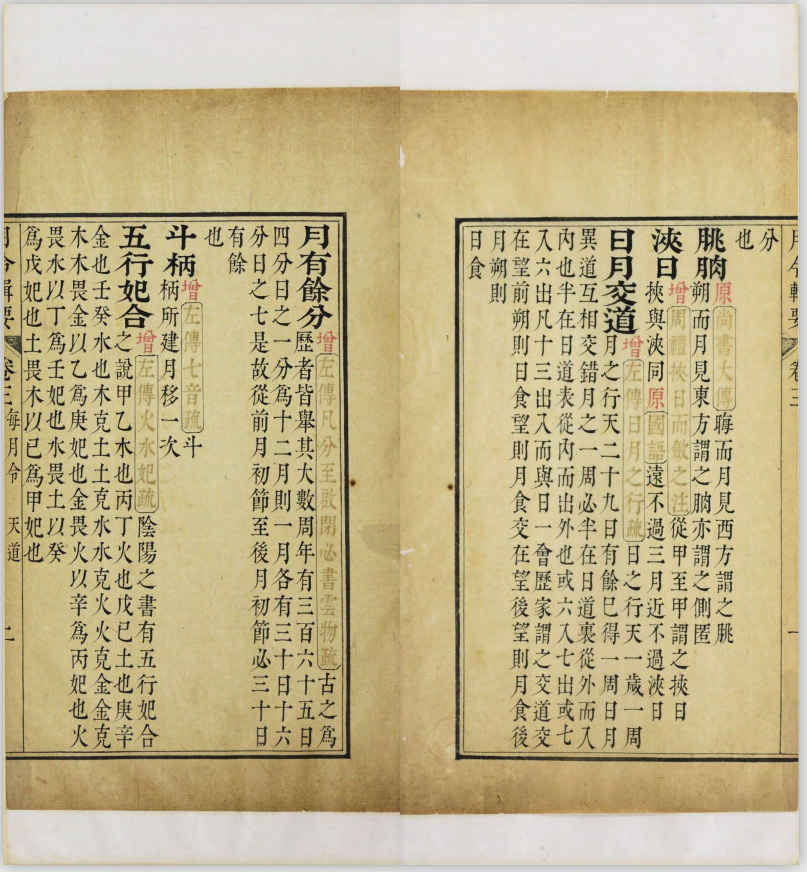 月令輯要 卷三 一
分
也
朓朒原尚書大傳晦而月見西方謂之朓
朔而月見東方謂之朒亦謂之側匿
浹日增周禮挾日而斂之注從甲至甲謂之挾日
挾與浹同原國語遠不過三月近不過浹日
日月交道增左傳日月之行疏日之行天一歲一周
月之行天二十九日有餘已得一周日月
異道互相交錯月之一周必半在日道裏從外而入
內也半在日道表從內而出外也或六入七出或七
入六出凡十三出入而與日一會歷家謂之交道交
在望前朔則日食望則月食交在望後望則月食後
月朔則
日食
月有餘分增左傳凡分至啟閉必書雲物疏古之為
歷者皆舉其大數周年有三百六十五日
四分日之一分為十二月則一月各有三十日十六
分日之七是故從前月初節至後月初節必三十日
有餘
也
斗柄增左傳七音疏斗
柄所建月移一次
五行妃合增左傳火水妃疏陰陽之書有五行妃合
之說甲乙木也丙丁火也戊己土也庚辛
金也壬癸水也木克土土克水水克火火克金金克
木木畏金以乙為庚妃也金畏火以辛為丙妃也火
畏水以丁為壬妃也水畏土以癸
為戊妃也土畏木以己為甲妃也
月令輯要 卷三每月令 天道 二